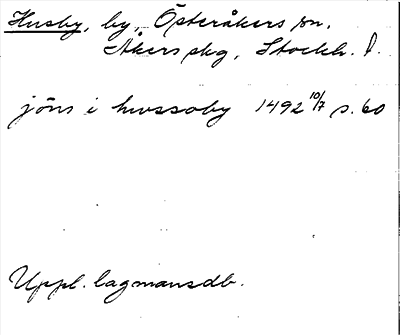 Husby, by, Österåkers sn.
Åkers skg, Stockh. l.
jöns i hwssoby 1492 10/7 s. 60
Uppl. lagmansdb.